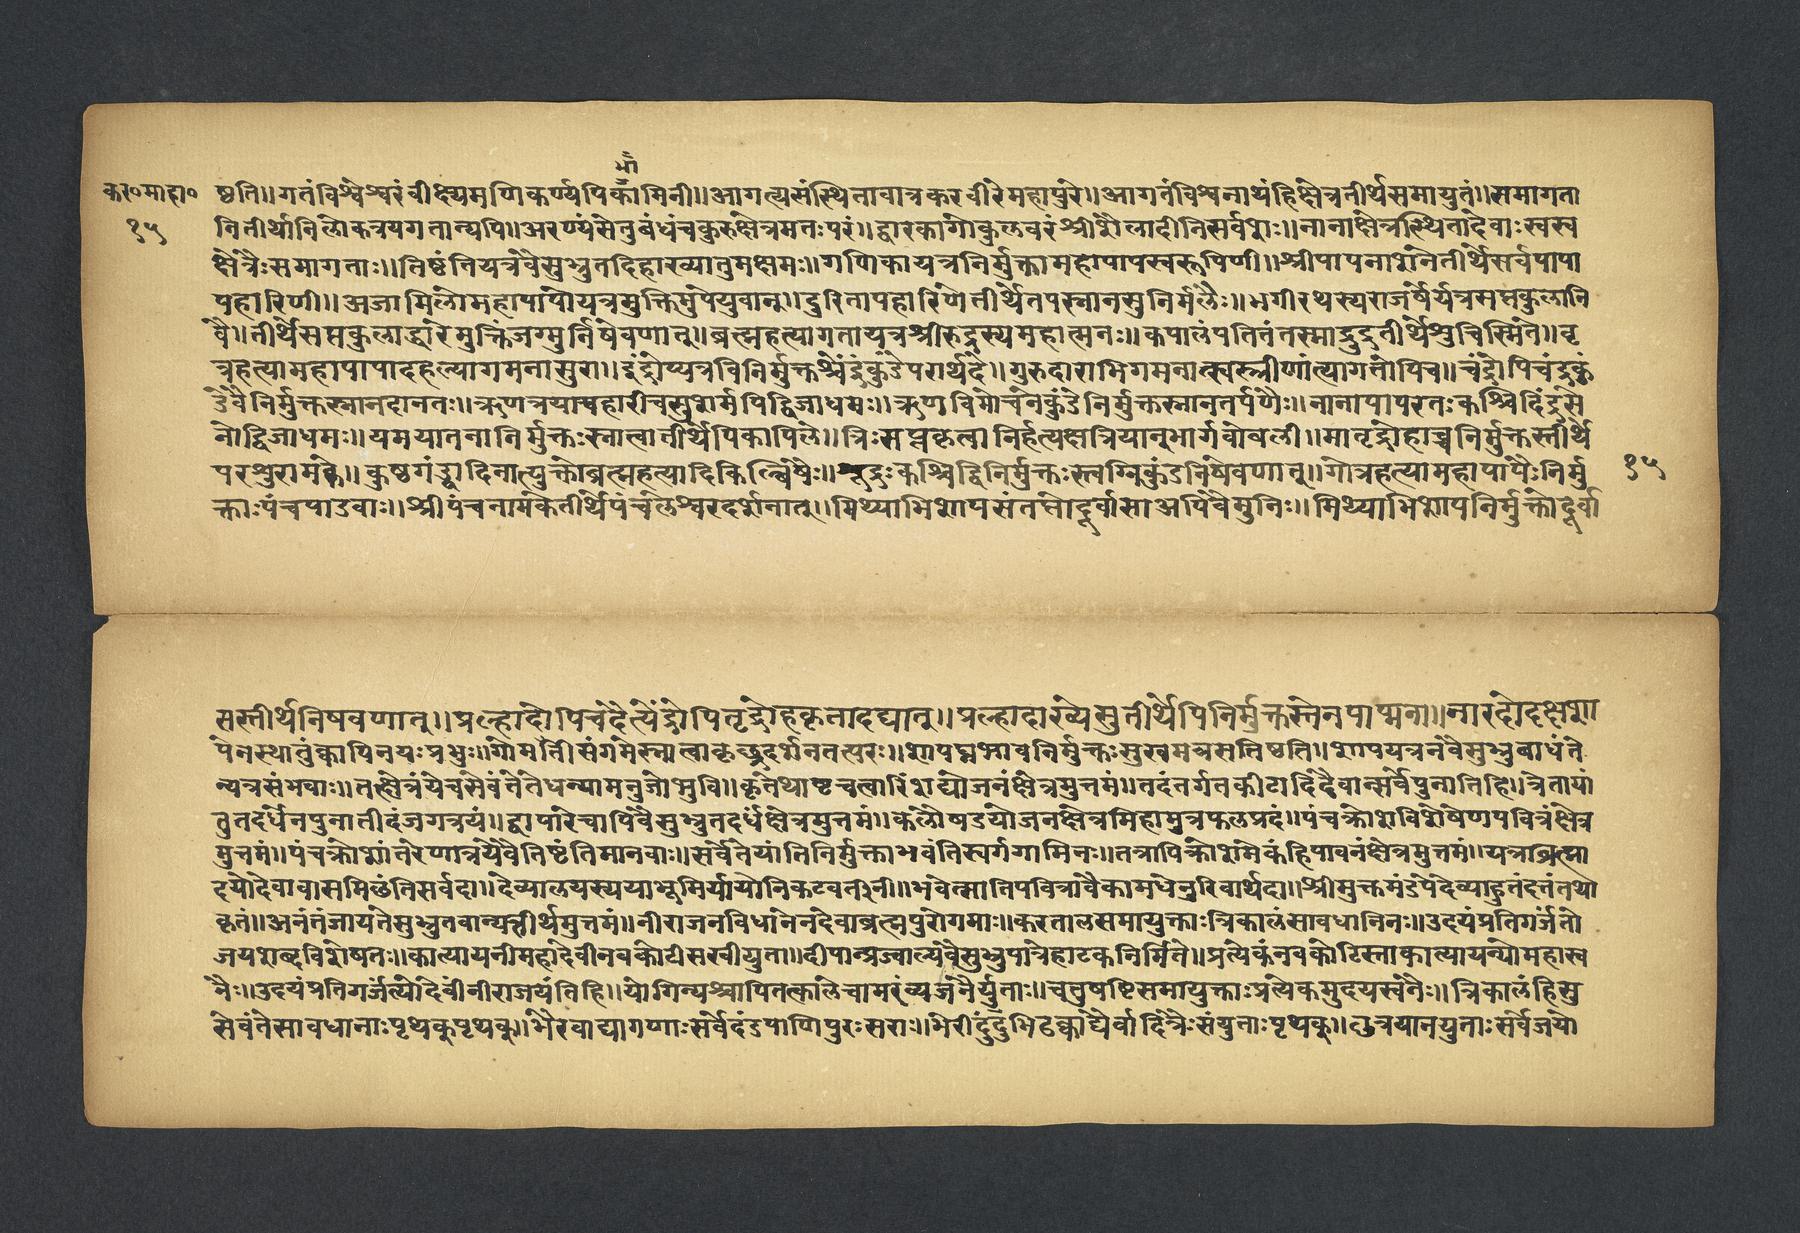 धी
कर०माहा० ष्ठति॥गतंविश्वेश्वरंवीक्ष्यमणिकर्ण्यपिकामिनी॥आगत्यसंस्थितावात्रकरवीरेमहापुरे॥आगतंविश्वनाथंहिक्षेत्रतीर्थसमायुतं॥समागता
१५ नितीर्थानिलोकत्रयगतान्यपि॥अरण्यंसेतुबंधंचकुरुक्षेत्रमतःपरं॥द्वारकागोकुलवरंश्रीशैलादीनिसर्वशः॥नानाक्षेत्रस्थितादेवाःस्वस्व
क्षेत्रैःसमागताः॥तिष्ठंतियत्रवैसुभ्रुतदिहाख्यातुमक्षमः॥गणिकायत्रनिर्मुक्तामहापापस्वरूपिणी॥श्रीपापनाशनेतीर्थेसर्वपापा
पहारिणी॥अजामिलोमहापापोयत्रमुक्तिमुपेयुवान्॥दुरितापहारिणेतीर्थेतपस्नानसुनिर्मलैः॥भगीरथस्यराजर्षेर्यत्रसप्तकुलानि
वै॥तीर्थेसप्तकुलोद्धारेमुक्तिंजग्मुर्निषेवणात्॥ब्रह्महत्यागतायत्रश्रीरुद्रस्यमहात्मनः॥कपालंपतितंतस्माद्रुद्रतीर्थेशुचिस्मिते॥वृ
त्रहत्यामहापापादहल्यागमनासुरा॥इंद्रोप्यत्रविनिर्मुक्तश्चेंद्रकुंडेपरार्थदे॥गुरुदाराभिगमनात्स्वस्त्रीणांत्यागतोपिच॥चंद्रोपिचंद्रकुं
डेवैनिर्मुक्तस्नानदानतः॥ऋणत्रयापहारीचसुशर्मापिद्विजाधमः॥ऋणविमोचनकुंडेनिर्मुक्तस्नानतर्पणैः॥नानापापरतःकश्चिदिंद्रसे
नोद्विजाधमः॥यमयातनानिर्मुक्तःस्नात्वातीर्थेपिकापिले॥त्रिःसप्तकृत्वानिर्हत्यक्षत्रियान्भार्गवोबली॥मातृद्रोहाच्चनिर्मुक्तस्तीर्थे
परशुरामके॥कुष्ठगंडादिनात्युक्तोब्रह्महत्यादिकिल्बिषैः॥शूद्रःकश्चिद्विनिर्मुक्तःस्त्वग्निकुंडनिषेवणात्॥गोत्रहत्यामहापापैःनिर्मु १५
क्ताःपंचपांडवाः॥श्रीपंचनामकेतीर्थेपंचलेश्वरदर्शनात्॥मिथ्याभिशापसंतप्तोदूर्वासाअपिवैमुनिः॥मिथ्याभिशापनिर्मुक्तोदूर्वा
सस्तीर्थनिषेवणात्॥प्रल्हादोपिचदैत्येंद्रोपितृद्रोहकृतादघात्॥प्रल्हादाख्येसुतीर्थेपिनिर्मुक्तस्तेनपाप्मना॥नारदोदक्षशा
पेनस्थातुंक्वापिनयःप्रभुः॥गोमतीसंगमेस्नात्वाकृच्छ्रदर्शनतत्परः॥शापघ्नभावनिर्मुक्तःसुखमत्रसतिष्ठति॥शापयत्रनवैसुभ्रुबाधंते
न्यत्रसंभवाः॥तत्क्षेत्रंयेचसेवंतेतेधन्यामनुजाभुवि॥कृतेथाष्टचत्वारिंशद्योजनंक्षेत्रमुत्तमं॥तदंतर्गतकीटादिदैवान्सर्वेपुनातिहि॥त्रेतायां
तुतदर्धेनपुनातीदंजगत्रयं॥द्वापारेचापिवैसुभ्रुतदर्धंक्षेत्रमुत्तमं॥कलौषड्योजनक्षेत्रमिहामुत्रफलप्रदं॥पंचक्रोशविशेषेणपवित्रंक्षेत्र
मुत्तमं॥पंचक्रोशांतरेणात्रयेवैतिष्ठंतिमानवाः॥सर्वेतेयांतिनिर्मुक्ताभवंतिस्वर्गगामिनः॥तत्रापिक्रोशमेकंहिपावनंक्षेत्रमुत्तमं॥यत्रब्रह्मा
दयोदेवावासमिछंतिसर्वदा॥देव्यालयस्ययाभूमिर्यायोनिकटवर्तनी॥भवेत्सातिपवित्रावैकामधेनुरिवार्थदा॥श्रीमुक्तमंडपेदेव्याहुतंदत्तंतथा
कृतं॥अनंतंजायतेसुभ्रुतवान्यत्तीर्थमुत्तमं॥नीराजनविधानेनदेवाब्रह्मपुरोगमाः॥करतालसमायुक्ताःत्रिकालंसावधानिनः॥उदयंप्रतिगर्जंतो
जयशब्दविशेषतः॥कात्यायनीमहादेवीनवकोटीसखीयुता॥दीपान्प्रज्वाल्यवैसुभ्रुपात्रेहाटकनिर्मिते॥प्रत्येकंनवकोटिस्ताकात्यायन्योमहास्व
नैः॥उदयंप्रतिगर्जंत्योदेवींनीराजयंतिहि॥योगिन्यश्चापितत्कालेचामरंव्यजनैर्युताः॥चतुषष्टिसमायुक्ताःप्रत्येकमुदयस्वनैः॥त्रिकालंहिसु
सेवंतेसावधानाःपृथक्पृथक्॥भैरवाद्यागणाःसर्वेदंडपाणिपुरःसराः॥भेरीदुंदुभिढक्काद्यैर्वादित्रैःसंयुताःपृथक्॥छत्रयानयुताःसर्वेजयो